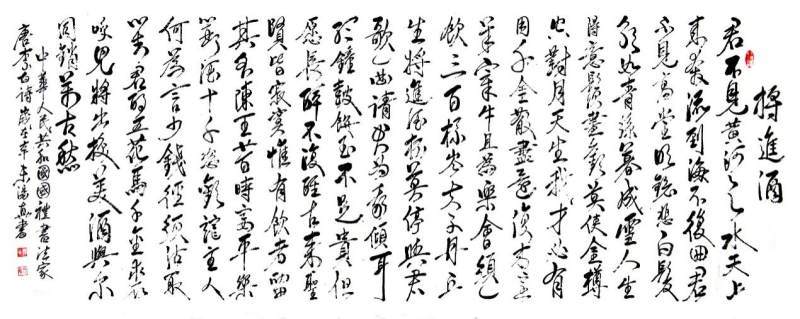 將進酒
君不見黃河之水天上
來奔流到海不復回君
不見高堂明鏡悲白髮
朝如青絲暮成雪人生
得意須盡歡莫使金樽
空對月天生我才必有
用千金散盡還復來烹
羊宰牛且為樂會須一
飲三百杯岑夫子丹丘
生將進酒杯莫停與君
歌一曲請君為我傾耳
聽鐘鼓饌玉不足貴但
愿長醉不復醒古來聖
賢皆寂寞惟有飲者留
其名陳王昔時宴平樂
斗酒十千恣歡謔主人
何為言少錢徑須沽取
對君酌五花馬千金裘
呼兒將出換美酒與爾
同銷萬古愁
中華人民共和國國禮書法家
唐李白詩歲在辛書